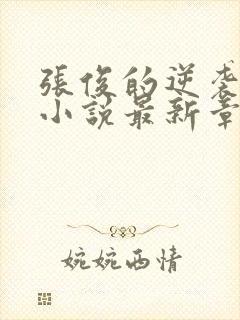 張俊的逆袭
小說最新章
婉婉西情